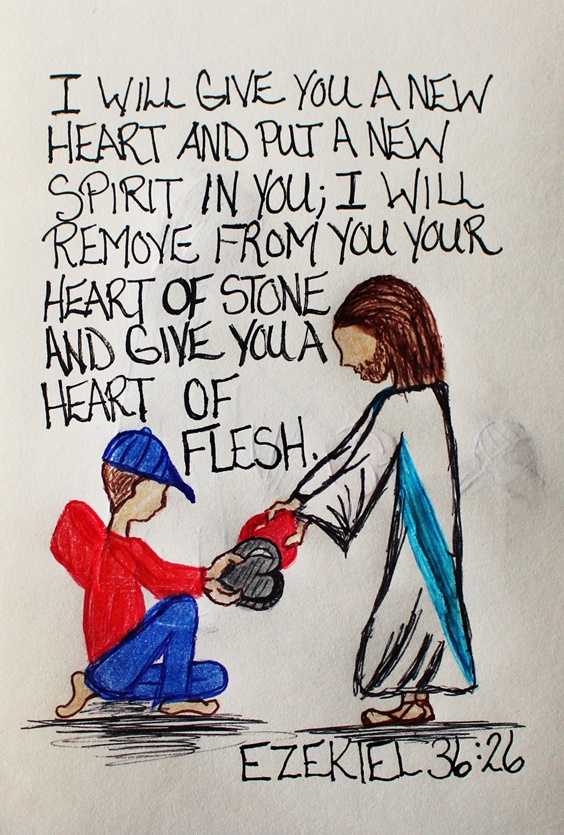 I WILL GIVE YOU A NEW
HEART AND PUT A NEW
SPIRIT IN YOU; I WILL
REMOVE FROM YOU YOUR
HEART OF STONE
AND GIVE YOU A
HEART OF
FLESH.
EZEKIEL 36:26